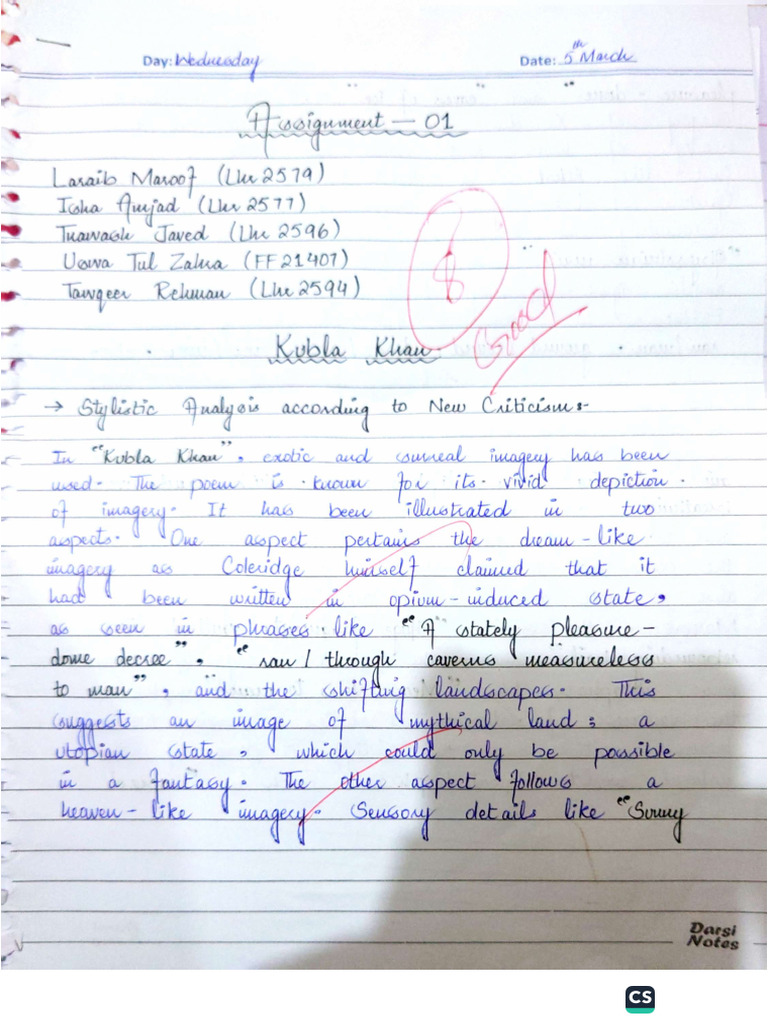 Day: Wednesday Date: 5th March
Assignment — 01
Laraib Maroof (Lhr 2579)
Isha Amjad (Lhr 2577)
Javed (Lhr 2596)
Uswa Tul Zahra (FF21407)
Tawqeer Rehman (Lhr 2594)
8
Good
Kubla Khan
→ Stylistic Analysis according to New Criticism:-
In "Kubla Khan", exotic and surreal imagery has been
used. The poem is known for its vivid depiction
of imagery. It has been illustrated in two
aspects. One aspect pertains the dream-like
imagery as Coleridge himself claimed that it
had been written in opium-induced state,
as seen in phrases like "A stately pleasure-
dome decree", "ran / through caverns measureless
to man", and the shifting landscapes. This
suggests an image of mythical land; a
utopian state, which could only be possible
in a fantasy. The other aspect follows a
heaven-like imagery. Sensory details like "Sunny
Darsi
Notes
CS